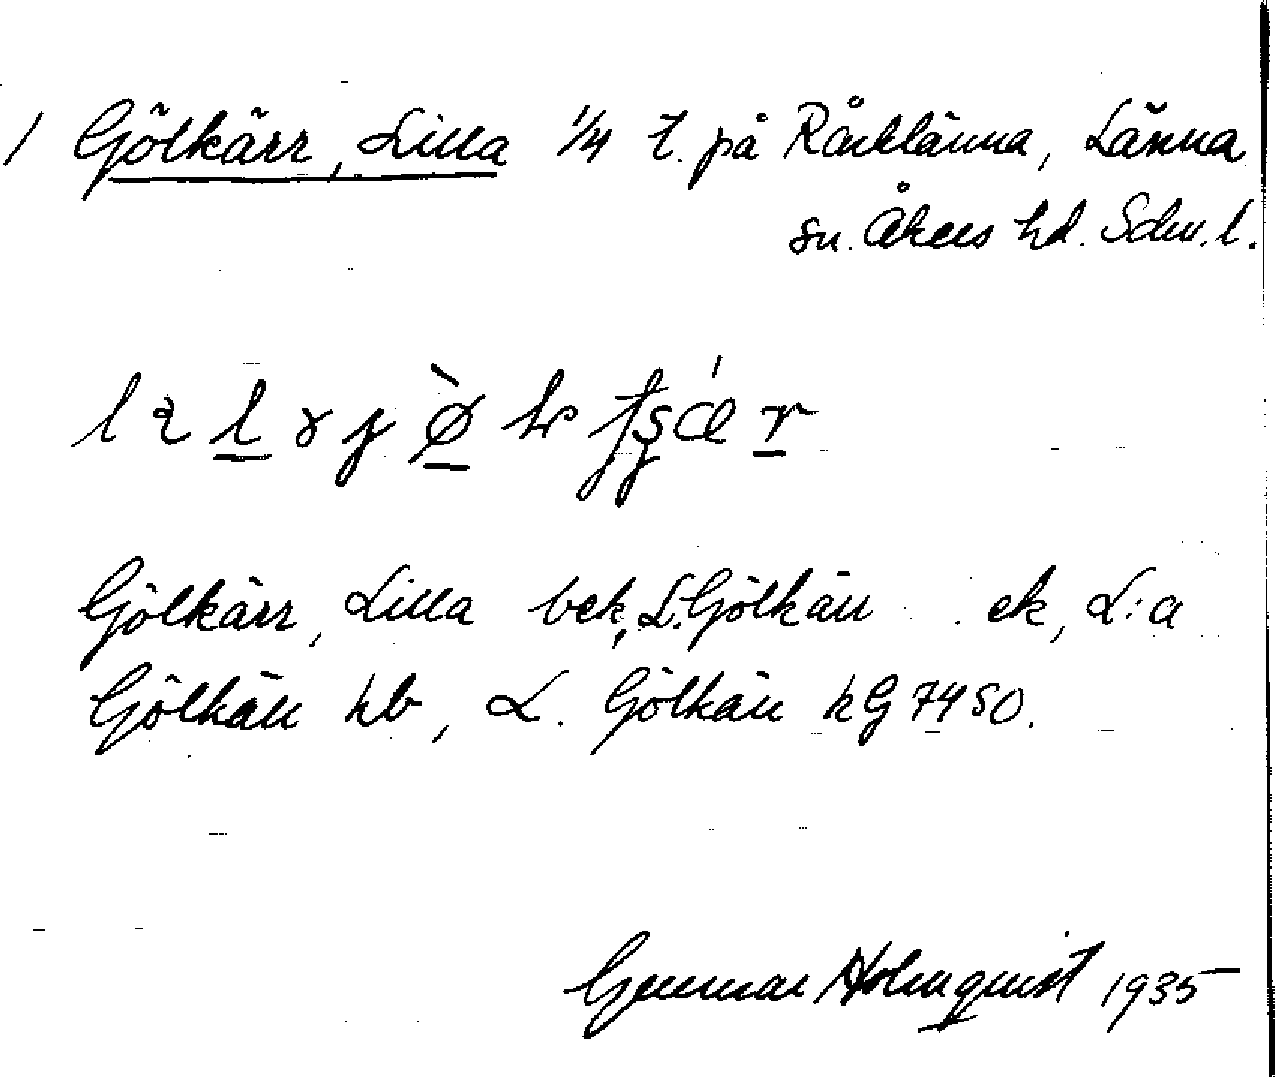 1 Gölkärr, Lilla 1/4 t. på Råcklänna, Länna
sn. Åkers hd. Sdm. l.
Gölkärr, Lilla bek, L. Gölkärr ek, L:a
Gölkärr hb, L. Gölkärr hG 7450.
Gunnar Holmquist 1935